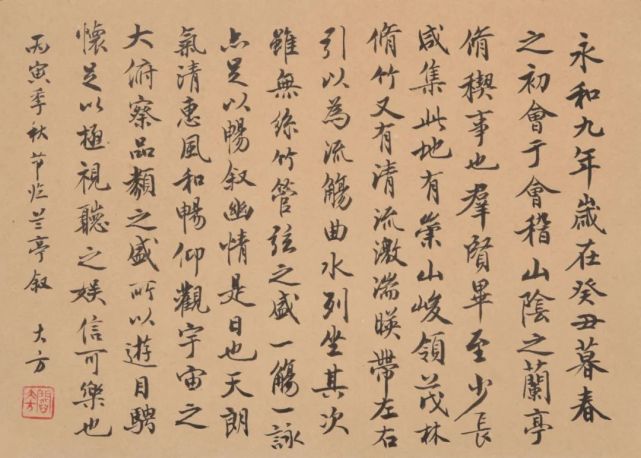 永和九年歲在癸丑暮春
之初會于會稽山陰之蘭亭
脩稧事也羣賢畢至少長
咸集此地有崇山峻領茂林
脩竹又有清流激湍暎帶左右
引以為流觴曲水列坐其次
雖無絲竹管弦之盛一觴一詠
亦足以暢叙幽情是日也天朗
氣清惠風和暢仰觀宇宙之
大俯察品類之盛所以遊目騁
懷足以極視聽之娛信可樂也
丙寅季秋节临兰亭叙 大方